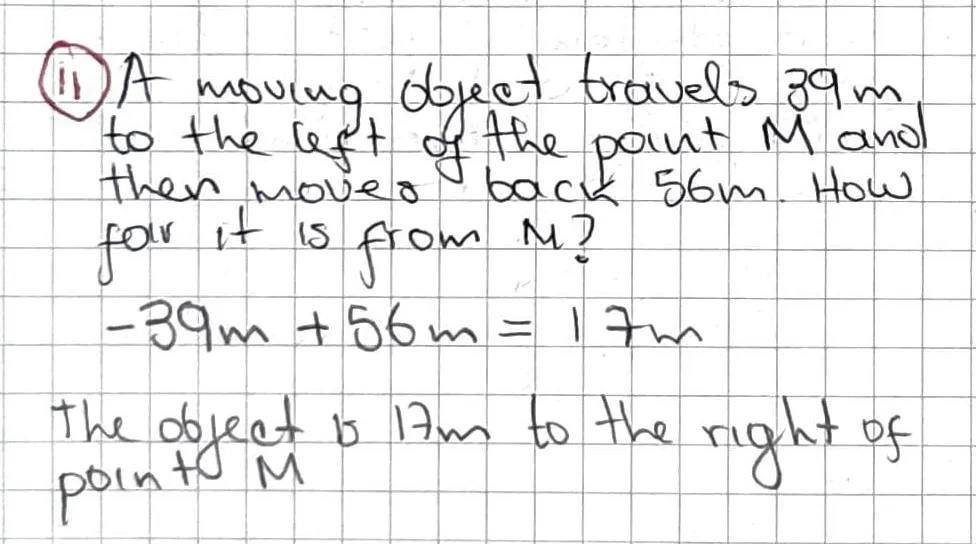 11 A moving object travels 39m
to the left of the point M and
then moves back 56m. How
far it is from M?
-39m + 56m = 17m
The object is 17m to the right of
point M